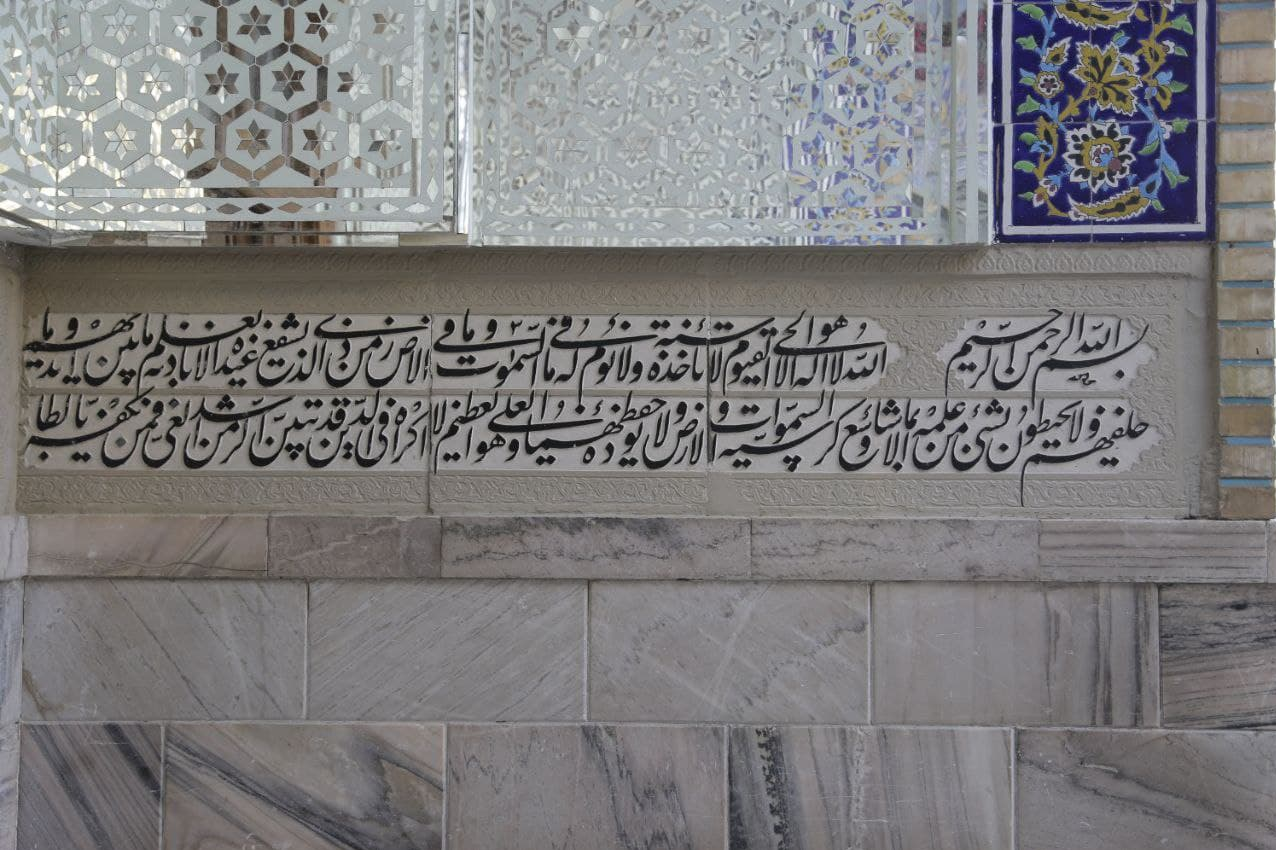 بسم الله الرحمن الرحیم الله لا اله الا هو الحی القیوم لا تاخذه سنة ولا نوم له ما فی السموات وما فی الارض من ذی الذی یشفع عنده الا باذنه یعلم ما بین ایدیهم وما
خلفهم ولا یحیطون بشئ من علمه الا بما شاء وسع کرسیه السموات و الارض ولا یوده حفظهما وهو العلی العظیم لا اکراه فی الدین قد تبین الرشد من الغی فمن یکفر بالطا